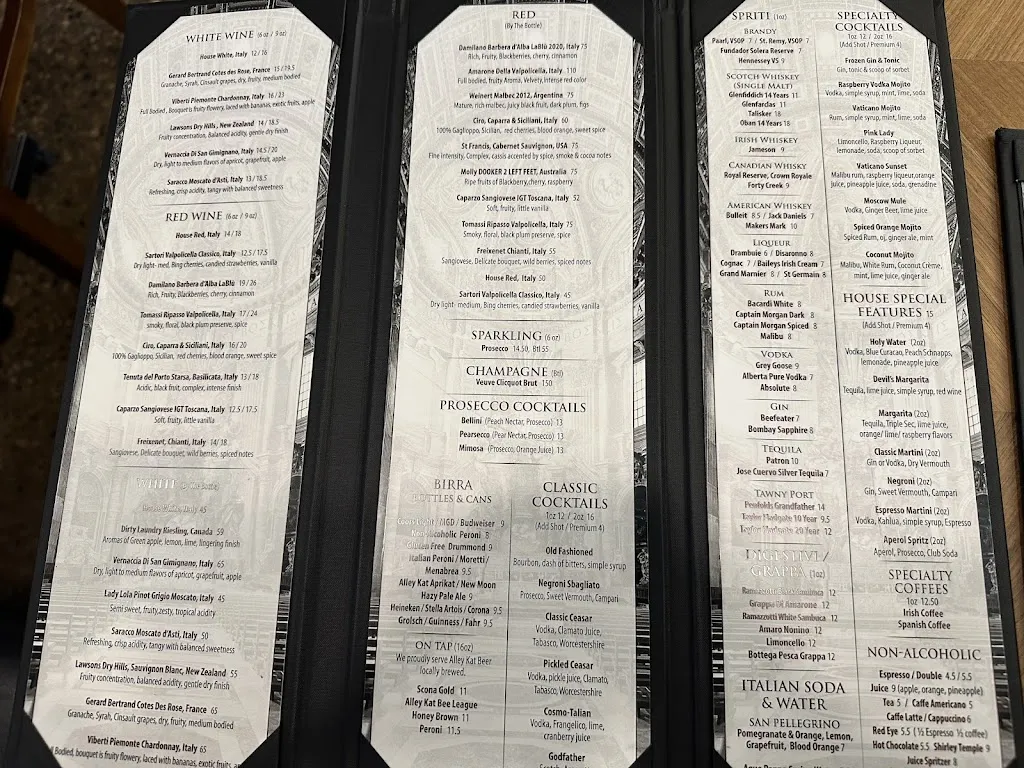 WHITE WINE (6oz / 9oz)
House White, Italy 12 / 16
Gerard Bertrand Cotes des Rose, France 15 / 19.5
Granache, Syrah, Cinsault grapes, dry, fruity, medium bodied
Viberti Piemonte Chardonnay, Italy 16 / 23
Full Bodied, Bouquet is fruity flowery, laced with bananas, exotic fruits, apple
Lawsons Dry Hills, New Zealand 14 / 18.5
Fruity concentration, Balanced acidity, gentle dry finish
Vernaccia Di San Gimignano, Italy 14.5 / 20
Dry, light to medium flavors of apricot, grapefruit, apple
Saracco Moscato d'Asti, Italy 13 / 18.5
Refreshing, crisp acidity, tangy with balanced sweetness
RED WINE (6oz / 9oz)
House Red, Italy 14 / 18
Sartori Valpolicella Classico, Italy 12.5 / 17.5
Dry light- med, Bing cherries, candied strawberries, vanilla
Damilano Barbera d'Alba LaBlù 19 / 26
Rich, Fruity, Blackberries, cherry, cinnamon
Tomassi Ripasso Valpolicella, Italy 17 / 24
smoky, floral, black plum preserve, spice
Ciro, Caparra & Siciliani, Italy 16 / 20
100% Gaglioppo, Sicilian, red cherries, blood orange, sweet spice
Tenuta del Porto Starsa, Basilicata, Italy 13 / 18
Acidic, black fruit, complex, intense finish
Caparzo Sangiovese IGT Toscana, Italy 12.5 / 17.5
Soft, fruity, little vanilla
Freixenet, Chianti, Italy 14/ 18
Sangiovese, Delicate bouquet, wild berries, spiced notes
WHITE
Italy 45
Dirty Laundry Riesling, Canada 59
Aromas of Green apple, lemon, lime, lingering finish
Vernaccia Di San Gimignano, Italy 65
Dry, light to medium flavors of apricot, grapefruit, apple
Lady Lola Pinot Grigio Moscato, Italy 45
Semi sweet, fruity,zesty, tropical acidity
Saracco Moscato d'Asti, Italy 50
Refreshing, crisp acidity, tangy with balanced sweetness
Lawsons Dry Hills, Sauvignon Blanc, New Zealand 55
Fruity concentration, balanced acidity, gentle dry finish
Gerard Bertrand Cotes des Rose, France 65
Granache, Syrah, Cinsault grapes, dry, fruity, medium bodied
Viberti Piemonte Chardonnay, Italy 65
Bodied, bouquet is fruity flowery, laced with bananas, exotic fruits,
RED
(By The Bottle)
Damilano Barbera d'Alba LaBlù 2020, Italy 75
Rich, Fruity, Blackberries, cherry, cinnamon
Amarone Della Valpolicella, Italy 110
Full bodied, fruity Aroma, Velvety, intense red color
Weinert Malbec 2012, Argentina 75
Mature, rich malbec, juicy black fruit, dark plum, figs
Ciro, Caparra & Siciliani, Italy 60
100% Gaglioppo, Sicilian, red cherries, blood orange, sweet spice
St Francis, Cabernet Sauvignon, USA 75
Fine intensity, Complex, cassis accented by spice, smoke & cocoa notes
Molly DOOKER 2 LEFT FEET, Australia 75
Ripe fruits of Blackberry, cherry, raspberry
Caparzo Sangiovese IGT Toscana, Italy 52
Soft, fruity, little vanilla
Tomassi Ripasso Valpolicella, Italy 75
Smoky, floral, black plum preserve, spice
Freixenet Chianti, Italy 55
Sangiovese, Delicate bouquet, wild berries, spiced notes
House Red, Italy 50
Sartori Valpolicella Classico, Italy 45
Dry light- medium, Bing cherries, candied strawberries, vanilla
SPARKLING (6oz)
Prosecco 14.50, Btl 55
CHAMPAGNE (Btl)
Veuve Clicquot Brut 150
PROSECCO COCKTAILS
Bellini (Peach Nectar, Prosecco) 13
Pearsecco (Pear Nectar, Prosecco) 13
Mimosa (Prosecco, Orange Juice) 13
BIRRA
BOTTLES & CANS
Coors Light / MGD / Budweiser 9
Non-Alcoholic Peroni 8
Gluten Free Drummond 9
Italian Peroni / Moretti /
Menabrea 9.5
Alley Kat Aprikat / New Moon
Hazy Pale Ale 9
Heineken / Stella Artois / Corona 9.5
Grolsch / Guinness / Fahr 9.5
ON TAP (16oz)
We proudly serve Alley Kat Beer
locally brewed.
Scona Gold 11
Alley Kat Bee League
Honey Brown 11
Peroni 11.5
CLASSIC
COCKTAILS
1oz 12 / 2oz 16
(Add Shot / Premium 4)
Old Fashioned
Bourbon, dash of bitters, simple syrup
Negroni Sbagliato
Prosecco, Sweet Vermouth, Campari
Classic Ceasar
Vodka, Clamato Juice,
Tabasco, Worcestershire
Pickled Ceasar
Vodka, pickle juice, Clamato,
Tabasco, Worcestershire
Cosmo-Talian
Vodka, Frangelico, lime,
cranberry juice
Godfather
SPRITI (1oz)
BRANDY
Paarl, VSOP 7 / St. Remy, VSOP 7
Fundador Solera Reserve 7
Hennessey VS 9
SCOTCH WHISKEY
(SINGLE MALT)
Glenfiddich 14 Years 11
Glenfardas 11
Talisker 18
Oban 14 Years 18
IRISH WHISKEY
Jameson 9
CANADIAN WHISKY
Royal Reserve, Crown Royale
Forty Creek 9
AMERICAN WHISKEY
Bulleit 8.5 / Jack Daniels 7
Makers Mark 10
LIQUEUR
Drambuie 6 / Disaronno 8
Cognac 7 / Baileys Irish Cream 7
Grand Marnier 8 / St Germain 8
RUM
Bacardi White 8
Captain Morgan Dark 8
Captain Morgan Spiced 8
Malibu 8
VODKA
Grey Goose 9
Alberta Pure Vodka 7
Absolute 8
GIN
Beefeater 7
Bombay Sapphire 8
TEQUILA
Patron 10
Jose Cuervo Silver Tequila 7
TAWNY PORT
Penfolds Grandfather 14
Taylor Fladgate 10 Year 9.5
Taylor Fladgate 20 Year 12
DIGESTIVI/
GRAPPA (1oz)
Ramazzotti Black Sambuca 12
Grappa Di Amarone 12
Ramazzotti White Sambuca 12
Amaro Nonino 12
Limoncello 12
Bottega Pesca Grappa 12
ITALIAN SODA
& WATER
SAN PELLEGRINO
Pomegranate & Orange, Lemon,
Grapefruit, Blood Orange 7
SPECIALTY
COCKTAILS
1oz 12 / 2oz 16
(Add Shot / Premium 4)
Frozen Gin & Tonic
Gin, tonic & scoop of sorbet
Raspberry Vodka Mojito
Vodka, simple syrup, mint, lime, soda
Vaticano Mojito
Rum, simple syrup, mint, lime, soda
Pink Lady
Limoncello, Raspberry Liqueur,
lemonade, soda, scoop of sorbet
Vaticano Sunset
Malibu rum, raspberry liqueur, orange
juice, pineapple juice, soda, grenadine
Moscow Mule
Vodka, Ginger Beer, lime juice
Spiced Orange Mojito
Spiced Rum, oj, ginger ale, mint
Coconut Mojito
Malibu, White Rum, Coconut Crème,
mint, lime juice, ginger ale
HOUSE SPECIAL
FEATURES 15
(Add Shot / Premium 4)
Holy Water (2oz)
Vodka, Blue Curacao, Peach Schnapps,
lemonade, pineapple juice
Devil's Margarita
Tequila, lime juice, simple syrup, red wine
Margarita (2oz)
Tequila, Triple Sec, lime juice,
orange/ lime/ raspberry flavors
Classic Martini (2oz)
Gin or Vodka, Dry Vermouth
Negroni (2oz)
Gin, Sweet Vermouth, Campari
Espresso Martini (2oz)
Vodka, Kahlua, simple syrup, Espresso
Aperol Spritz (2oz)
Aperol, Prosecco, Club Soda
SPECIALTY
COFFEES
1oz 12.50
Irish Coffee
Spanish Coffee
NON-ALCOHOLIC
Espresso / Double 4.5 / 5.5
Juice 9 (apple, orange, pineapple)
Tea 5 / Caffe Americano 5
Caffe Latte / Cappuccino 6
Red Eye 5.5 (½ Espresso ½ coffee)
Hot Chocolate 5.5 Shirley Temple 9
Juice Spritzer 8